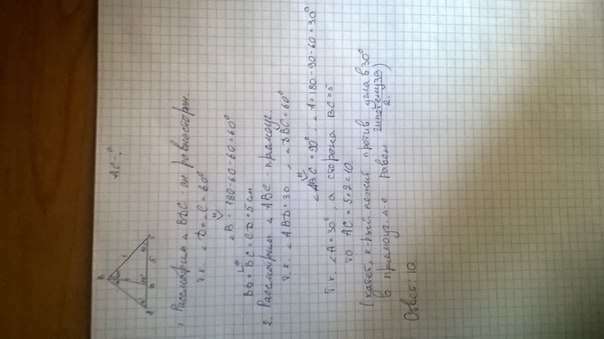 AC - ?
1. Рассмотрим △ BDC он равносторон.
т.к. ∠D = ∠C = 60°
∠B = 180-60-60=60°
BD = BC = CD = 5 см
2. Рассмотрим △ ABC прямоуг.
т.к. ∠ABD = 30, ∠DBC = 60°
∠ABC = 90°, ∠A = 180-90-60=30°
т.к. ∠A = 30° а сторона BC = 5
то AC = 5·2 = 10
(катет, к-рый лежит против угла в 30°
в прямоуг. △ равен гипотенуза/2)
Ответ: 10